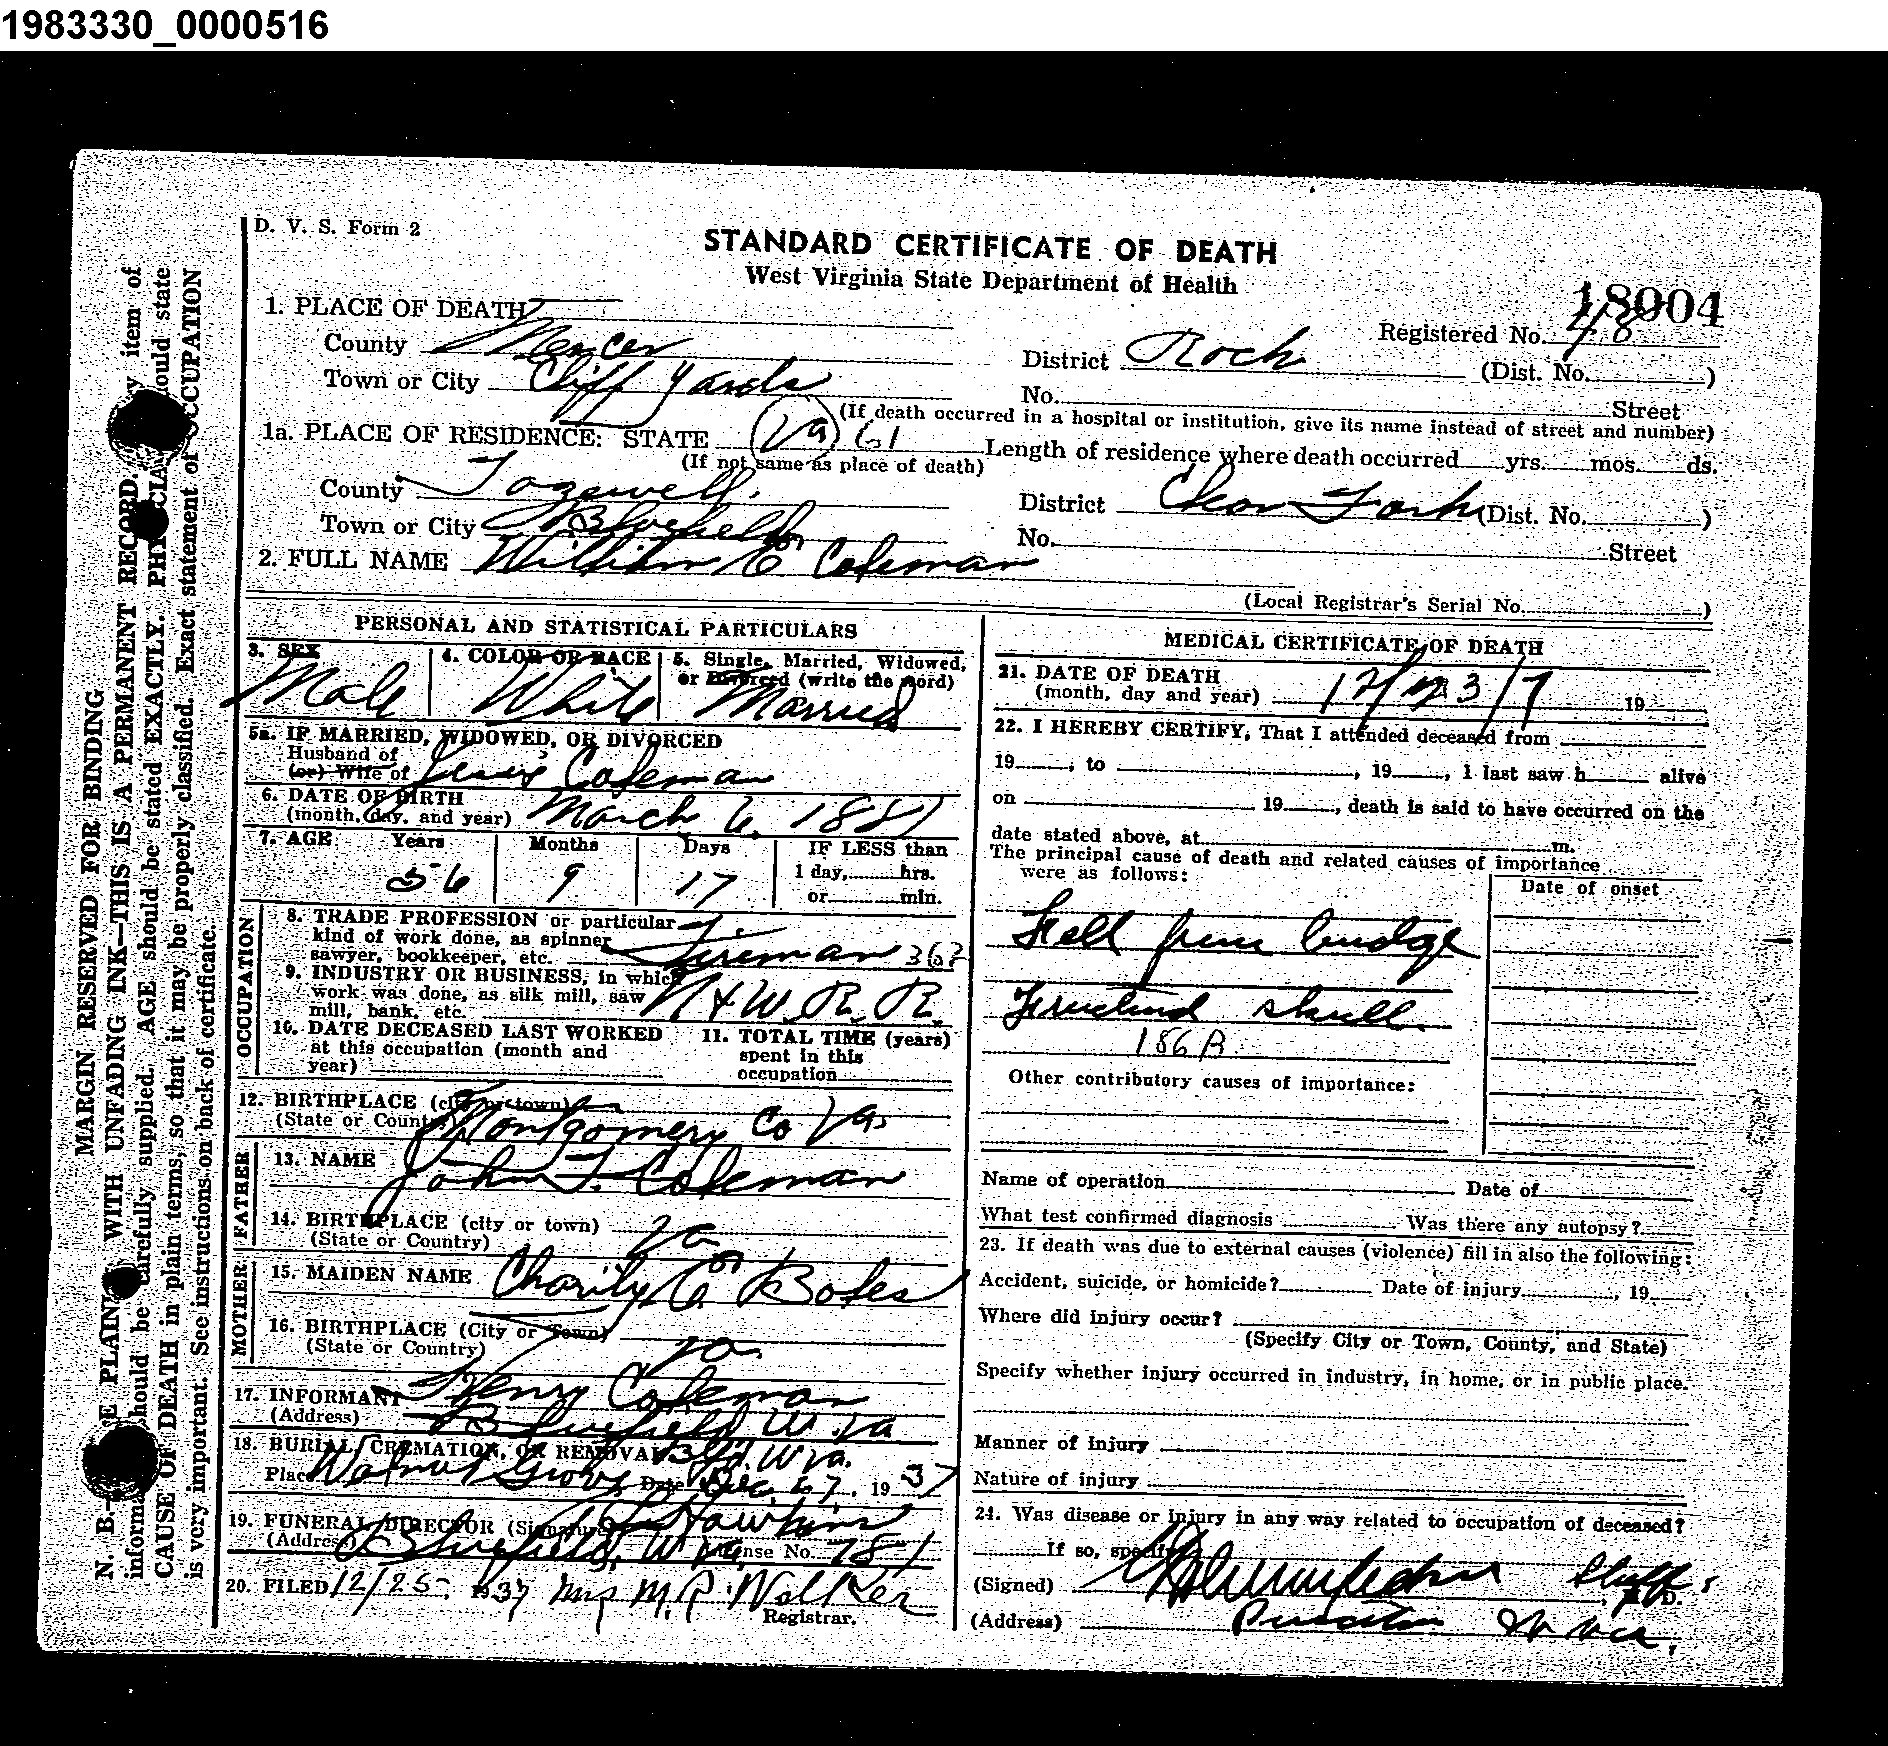 1983330_0000516
D. V. S. Form 2
STANDARD CERTIFICATE OF DEATH
West Virginia State Department of Health
18904
1. PLACE OF DEATH
Registered No. 48
County Mercer
District Rock (Dist. No. )
Town or City Cliff Yards
No. Street
(If death occurred in a hospital or institution, give its name instead of street and number)
1a. PLACE OF RESIDENCE: STATE Va 61
(If not same as place of death)
Length of residence where death occurred yrs. mos. ds.
County Tazewell.
District Clear Fork (Dist. No. )
Town or City Bluefield
No. Street
2. FULL NAME William E Coleman
(Local Registrar's Serial No. )
PERSONAL AND STATISTICAL PARTICULARS
3. SEX
Male
4. COLOR OR RACE
White
5. Single, Married, Widowed,
or Divorced (write the word)
Married
5a. IF MARRIED, WIDOWED, OR DIVORCED
Husband of
(or) Wife of Coleman
6. DATE OF BIRTH
(month, day, and year) March 6, 1881
7. AGE Years Months Days IF LESS than
56 9 17 1 day, hrs.
or min.
OCCUPATION
8. TRADE PROFESSION or particular
kind of work done, as spinner
sawyer, bookkeeper, etc. Fireman
9. INDUSTRY OR BUSINESS, in which
work was done, as silk mill, saw
mill, bank, etc. N & W. R. R.
10. DATE DECEASED LAST WORKED
at this occupation (month and
year)
11. TOTAL TIME (years)
spent in this
occupation
12. BIRTHPLACE (city or town)
(State or Country) Montgomery Co Va
FATHER
13. NAME John T. Coleman
14. BIRTHPLACE (city or town)
(State or Country) Va
MOTHER
15. MAIDEN NAME Charity E.
16. BIRTHPLACE (City or Town)
(State or Country) Va
17. INFORMANT Henry Coleman
(Address) Bluefield W. Va
18. BURIAL, CREMATION, OR REMOVAL Bfd. W Va.
Place Walnut Grove Date Dec. 19 37
19. FUNERAL DIRECTOR (Signature) Hawkins
(Address) Bluefield, W Va, License No. 781
20. FILED 12/25- 1937 Mrs M. R. Walker
Registrar.
MEDICAL CERTIFICATE OF DEATH
21. DATE OF DEATH
(month, day and year) 19
22. I HEREBY CERTIFY, That I attended deceased from
19 , to , 19 , I last saw h alive
on 19 , death is said to have occurred on the
date stated above, at m.
The principal cause of death and related causes of importance
were as follows:
Date of onset
Fell from bridge
Fractured skull.
186 B
Other contributory causes of importance:
Name of operation Date of
What test confirmed diagnosis Was there any autopsy?
23. If death was due to external causes (violence) fill in also the following:
Accident, suicide, or homicide? Date of injury , 19
Where did injury occur?
(Specify City or Town, County, and State)
Specify whether injury occurred in industry, in home, or in public place.
Manner of injury
Nature of injury
24. Was disease or injury in any way related to occupation of deceased?
If so, specify
(Signed) M. D.
(Address) Princeton W Va.
MARGIN RESERVED FOR BINDING
N. B.— WITH UNFADING INK—THIS IS A PERMANENT RECORD. item of
should be carefully supplied. AGE should be stated EXACTLY. should state
CAUSE OF DEATH in plain terms, so that it may be properly classified. Exact statement of OCCUPATION
is very important. See instructions on back of certificate.